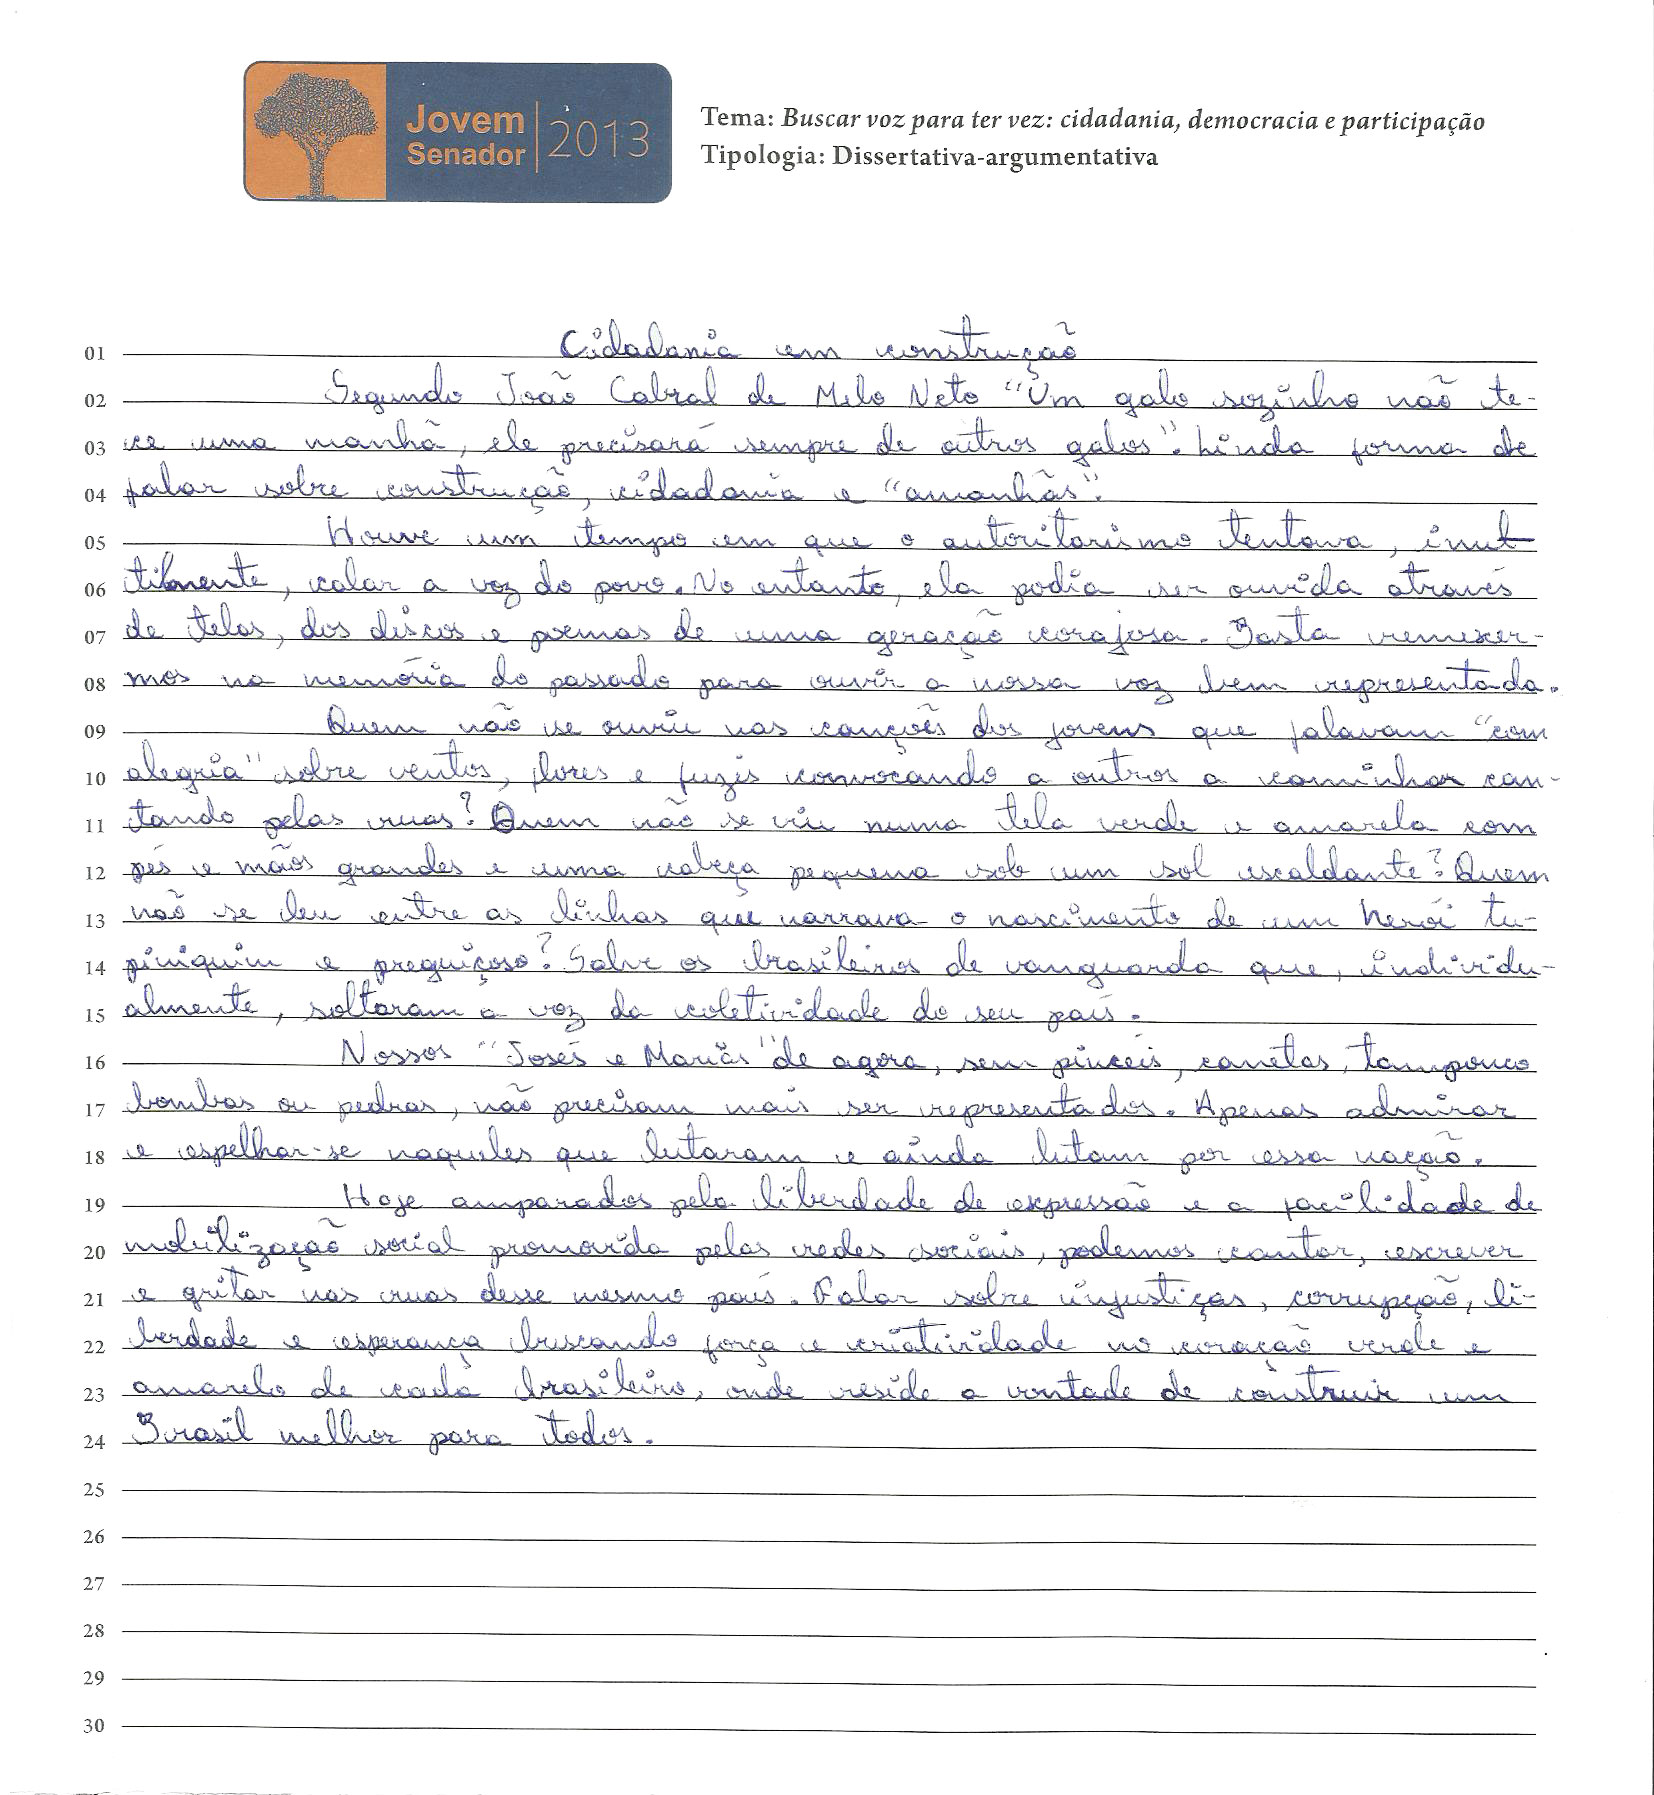 Jovem
Senador
2013
Tema: Buscar voz para ter vez: cidadania, democracia e participação
Tipologia: Dissertativa-argumentativa
01 Cidadania em construção
02 Segundo João Cabral de Melo Neto "Um galo sozinho não te-
03 ce uma manhã, ele precisará sempre de outros galos". Linda forma de
04 falar sobre construção, cidadania e "amanhãs".
05 Houve um tempo em que o autoritarismo tentava, inut
06 tilmente, calar a voz do povo. No entanto, ela podia ser ouvida através
07 de telas, dos discos e poemas de uma geração corajosa. Basta remexer-
08 mos na memória do passado para ouvir a nossa voz bem representada.
09 Quem não se ouviu nas canções dos jovens que falavam "com
10 alegria" sobre ventos, flores e fuzis convocando a outros a caminhar can-
11 tando pelas ruas? Quem não se viu numa tela verde e amarela com
12 pés e mãos grandes e uma cabeça pequena sob um sol escaldante? Quem
13 não se leu entre as linhas que narrava o nascimento de um herói tu-
14 piniquim e preguiçoso? Salve os brasileiros de vanguarda que, individu-
15 almente, soltaram a voz da coletividade do seu país.
16 Nossos "Josés e Marias" de agora, sem pincéis, canetas, tampouco
17 bombas ou pedras, não precisam mais ser representados. Apenas admirar
18 e espelhar-se naqueles que lutaram e ainda lutam por essa nação.
19 Hoje amparados pela liberdade de expressão e a facilidade de
20 mobilização social promovida pelas redes sociais, podemos cantar, escrever
21 e gritar nas ruas desse mesmo país. Falar sobre injustiças, corrupção, li-
22 berdade e esperança buscando força e criatividade no coração verde e
23 amarelo de cada brasileiro, onde reside a vontade de construir um
24 Brasil melhor para todos.
25
26
27
28
29
30